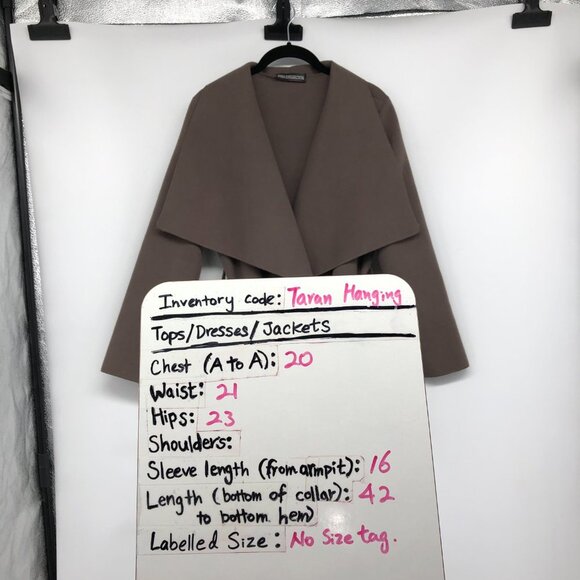 Inventory code: Tavan Hanging
Tops/Dresses/Jackets
Chest (A to A): 20
Waist: 21
Hips: 23
Shoulders:
Sleeve length (from armpit): 16
Length (bottom of collar): 42
to bottom hem)
Labelled Size: No Size tag.